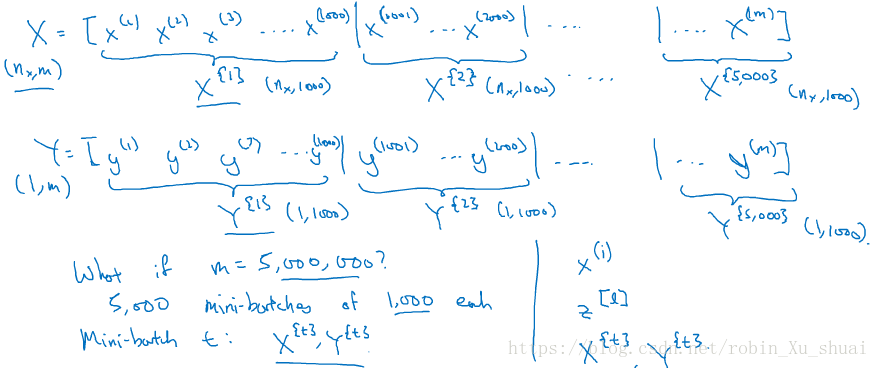 X = [ x^(1) x^(2) x^(3) .... x^(1000) | x^(1001) ... x^(2000) | .... | .... x^(m) ]
(n_x, m) X^{1} (n_x, 1000) X^{2} (n_x, 1000) .... X^{5,000} (n_x, 1000)
Y = [ y^(1) y^(2) y^(3) ... y^(1000) | y^(1001) ... y^(2000) | .... | ... y^(m) ]
(1, m) Y^{1} (1, 1000) Y^{2} (1, 1000) Y^{5,000} (1, 1000).
What if m = 5,000,000?
5,000 mini-batches of 1,000 each
Mini-batch t: X^{t}, Y^{t}.
x^(i)
z^[l]
X^{t}, Y^{t}.
https://blog.csdn.net/robin_Xu_shuai